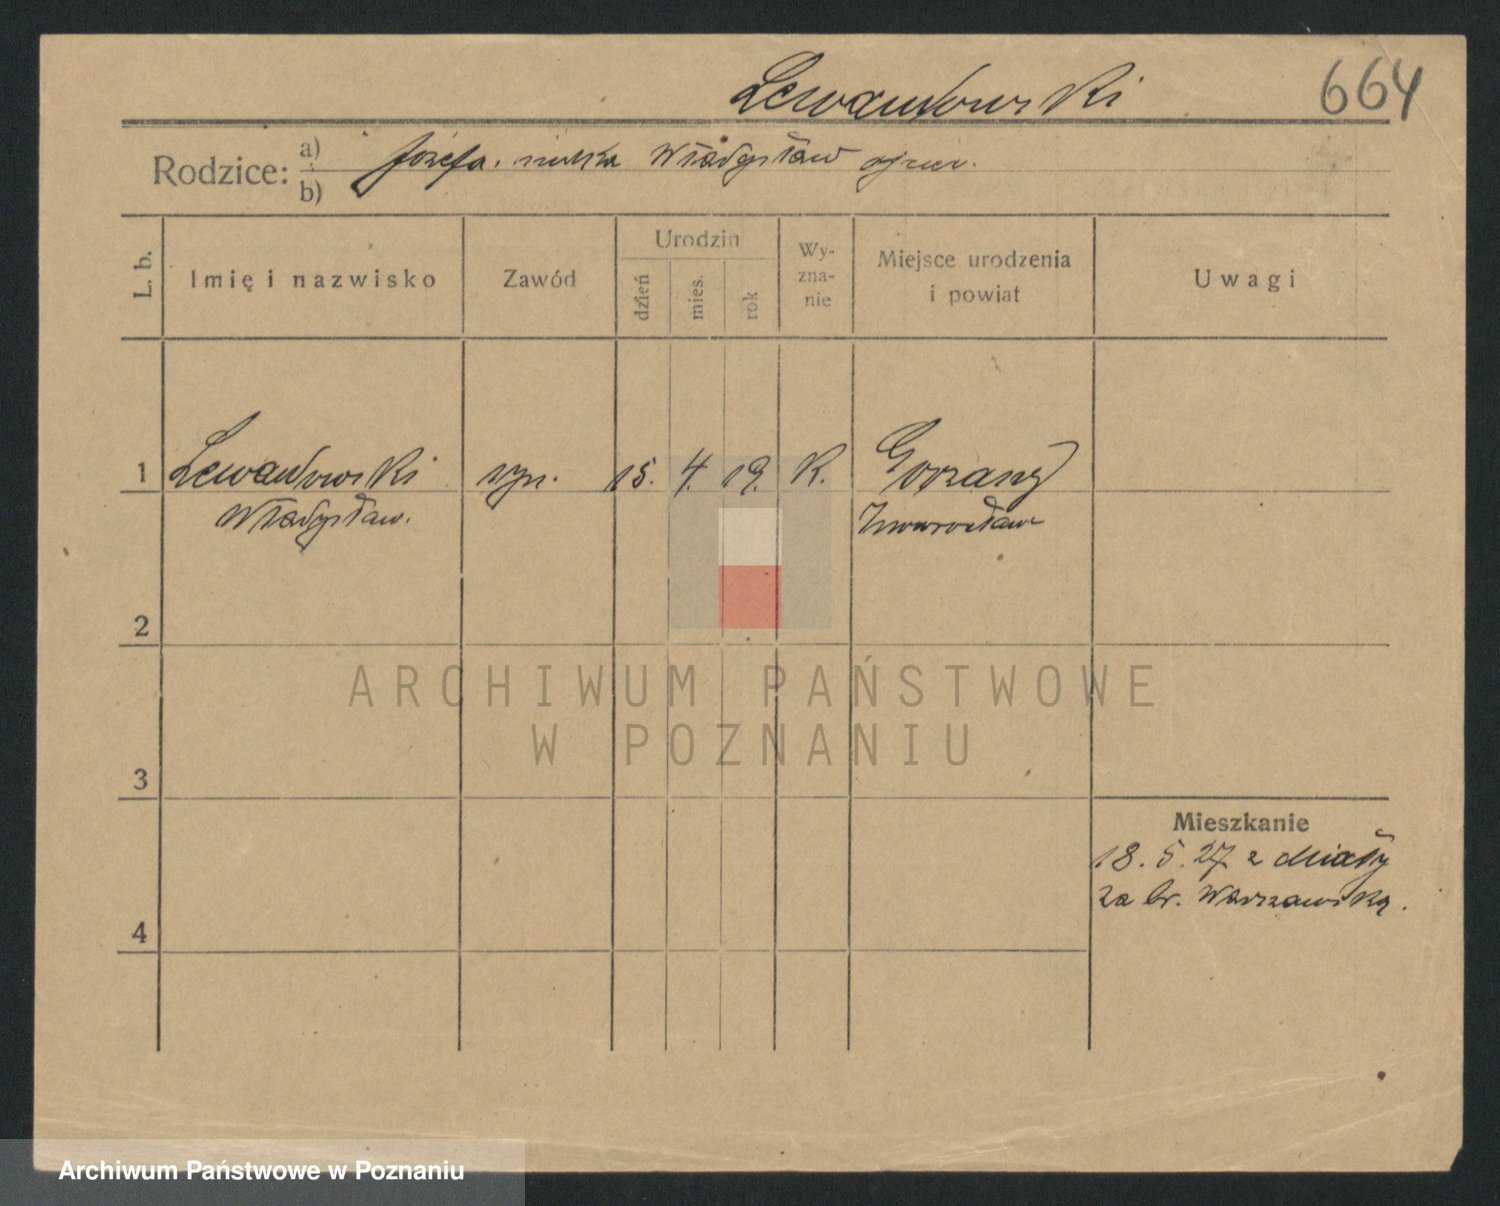 Lewandowski 664
Rodzice: a) Józefa. matka Władysław ojciec.
b)
L. b. Imię i nazwisko Zawód Urodzin dzień mies. rok Wy-zna-nie Miejsce urodzenia i powiat Uwagi
1 Lewandowski 15. 4. 19. K. Gorzany
Władysław. Inowrocław
2
ARCHIWUM PAŃSTWOWE
W POZNANIU
3
Mieszkanie
18. 5. 27 z
za br. Warszawską.
4
Archiwum Państwowe w Poznaniu